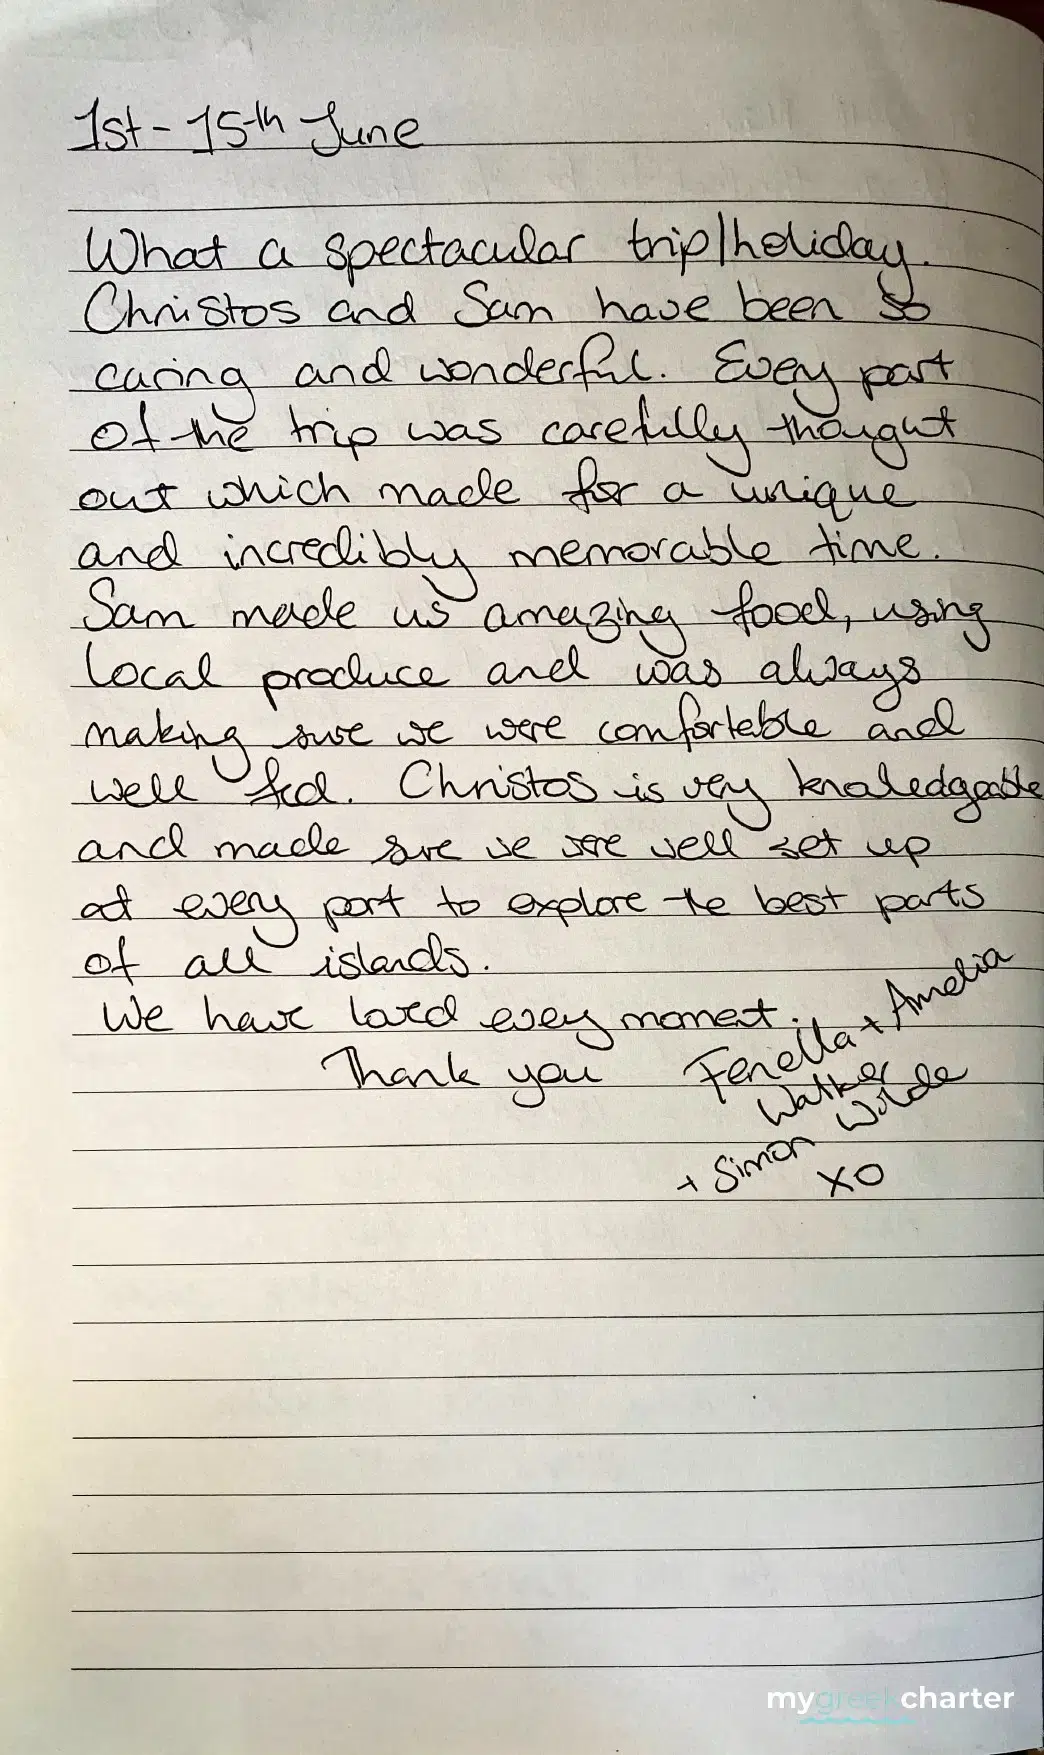 1st - 15th June
What a spectacular trip/holiday.
Christos and Sam have been so
caring and wonderful. Every part
of the trip was carefully thought
out which made for a unique
and incredibly memorable time.
Sam made us amazing food, using
local produce and was always
making sure we were comfortable and
well fed. Christos is very knowledgeable
and made sure we were well set up
at every port to explore the best parts
of all islands.
We have loved every moment.
Thank you Fenella + Amelia
Walker
+ Simon Wilde
XO
mygreekcharter